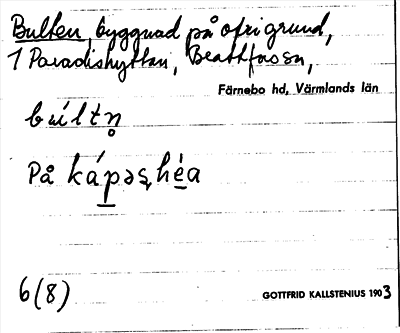 Bulten, byggnad på ofri grund,
1 Paradishyttan, Beatfors sn,
Färnebo hd, Värmlands län
búltn̥
På ká̱pəs̨hé̱a
6(8)
GOTTFRID KALLSTENIUS 1903